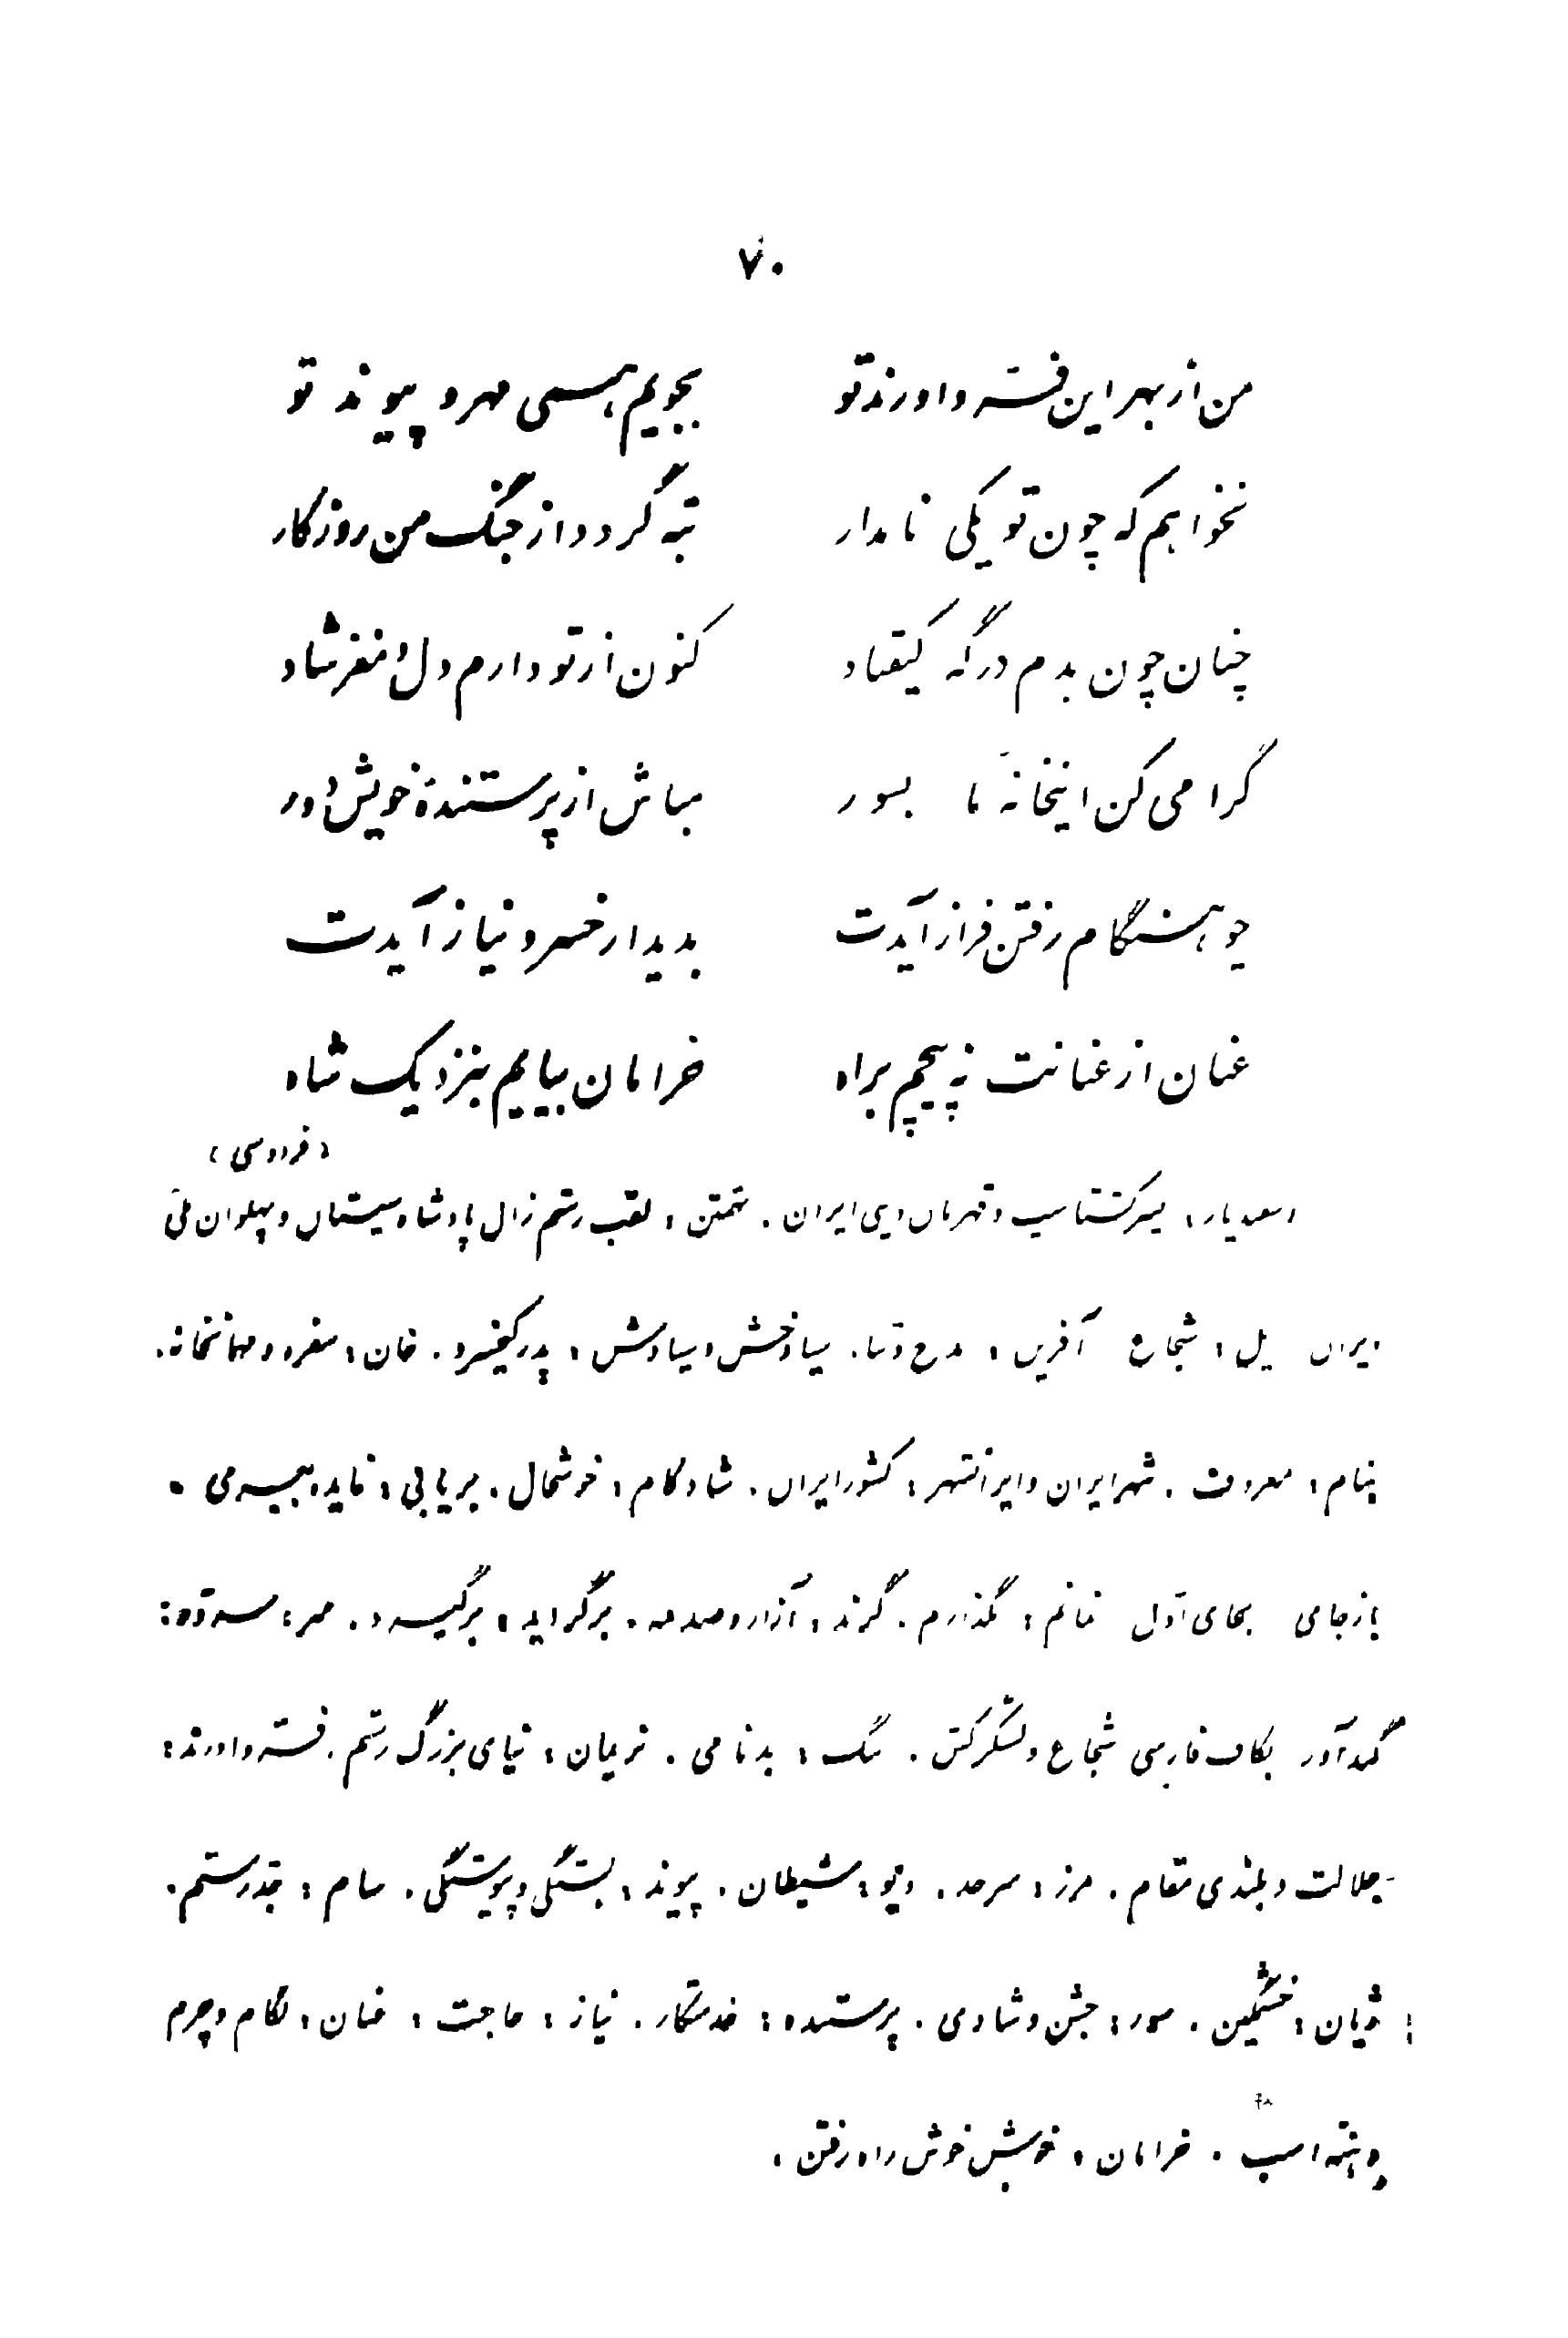 ۷۰
من از بهر این فره و اورند تو بجویم همی مهر و پیوند تو
نخواهم که چون تو یکی نامدار تبه گردد از جنگ من روزگار
چنان چون بدم درگه کیقباد کنون از تو دارم دل و مغز شاد
گرامی کن اینخانهٔ ما بسور مباش از پرستندهٔ خویش دور
چو هنگام رفتن فراز آیدت بدیدار خسرو نیاز آیدت
عنان از عنانت نه پیچم براه خرامان بیایم بنزدیک شاه
(فردوسی)
اسفندیار: پسر گشتاسب و قهرمان دینی ایران. تهمتن: لقب رستم زال پادشاه سیستان و پهلوان ملی
ایران یل: شجاع آفرین: مدح و ثنا. سیاوخش و سیاوش: پدر کیخسرو. خان: سفره و مهمانخانه.
بنام: معروف. شهر ایران و ایرانشهر: کشور ایران. شادکام: خوشحال. برتابی:
بازجای بجای اول نمانم: نگذارم. گزند: آزار و صدمه. برگراید: برگیرد.
گندآور بکاف فارسی شجاع و لشگرکش. ننگ: بدنامی. نریمان: نیای بزرگ رستم. فره و اورند:
جلالت و بلندی مقام. مرز: سرحد. دیو: شیطان. پیوند: بستگی و پیوستگی. سام: جد رستم.
ژیان: خشمگین. سور: جشن و شادی. پرستنده: خدمتکار. نیاز: حاجت: عنان: لگام و چرم
دهنه اسب. خرامان: خوش خوش راه رفتن.